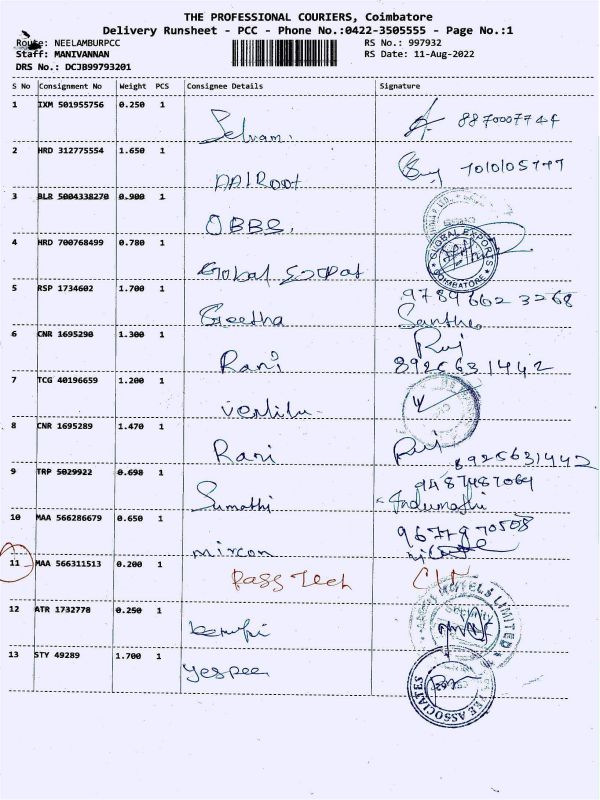 THE PROFESSIONAL COURIERS, Coimbatore
Delivery Runsheet - PCC - Phone No.:0422-3505555 - Page No.:1
Route: NEELAMBURPCC
RS No.: 997932
Staff: MANIVANNAN
RS Date: 11-Aug-2022
DRS No.: DCJB99793201
S No Consignment No Weight PCS Consignee Details Signature
1 IXM 501955756 0.250 1
Selvam.
2 HRD 312775554 1.650 1
3 BLR 5004338270 0.900 1
OBBS.
4 HRD 700768499 0.780 1
GLOBAL EXPORTS
COIMBATORE
Global
5 RSP 1734602 1.700 1
9789662 3268
Geetha
6 CNR 1695290 1.300 1
Rani
8925631442
7 TCG 40196659 1.200 1
8 CNR 1695289 1.470 1
Rani
8925631442
9 TRP 5029922 0.698 1
9487487064
Sumathi Indumathi
10 MAA 566286679 0.650 1
mircon
11 MAA 566311513 0.200 1
Pass Tech
HOTELS LIMITED
Security
12 ATR 1732778 0.250 1
13 STY 49289 1.700 1
yespee
ASSOCIATES